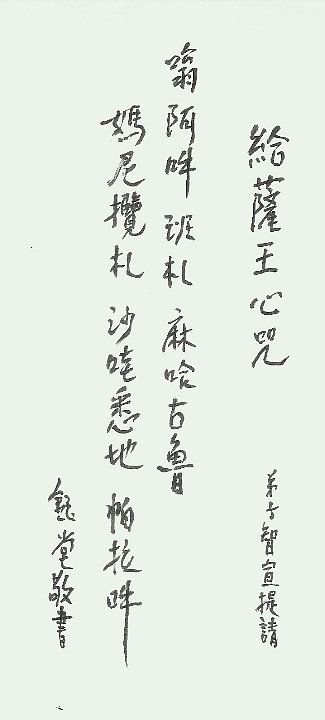 給薩王心咒
弟子智宣提請
嗡阿吽 班札 麻哈古魯
媽尼攬札 沙哇悉地 帕拉吽
銘堂敬書